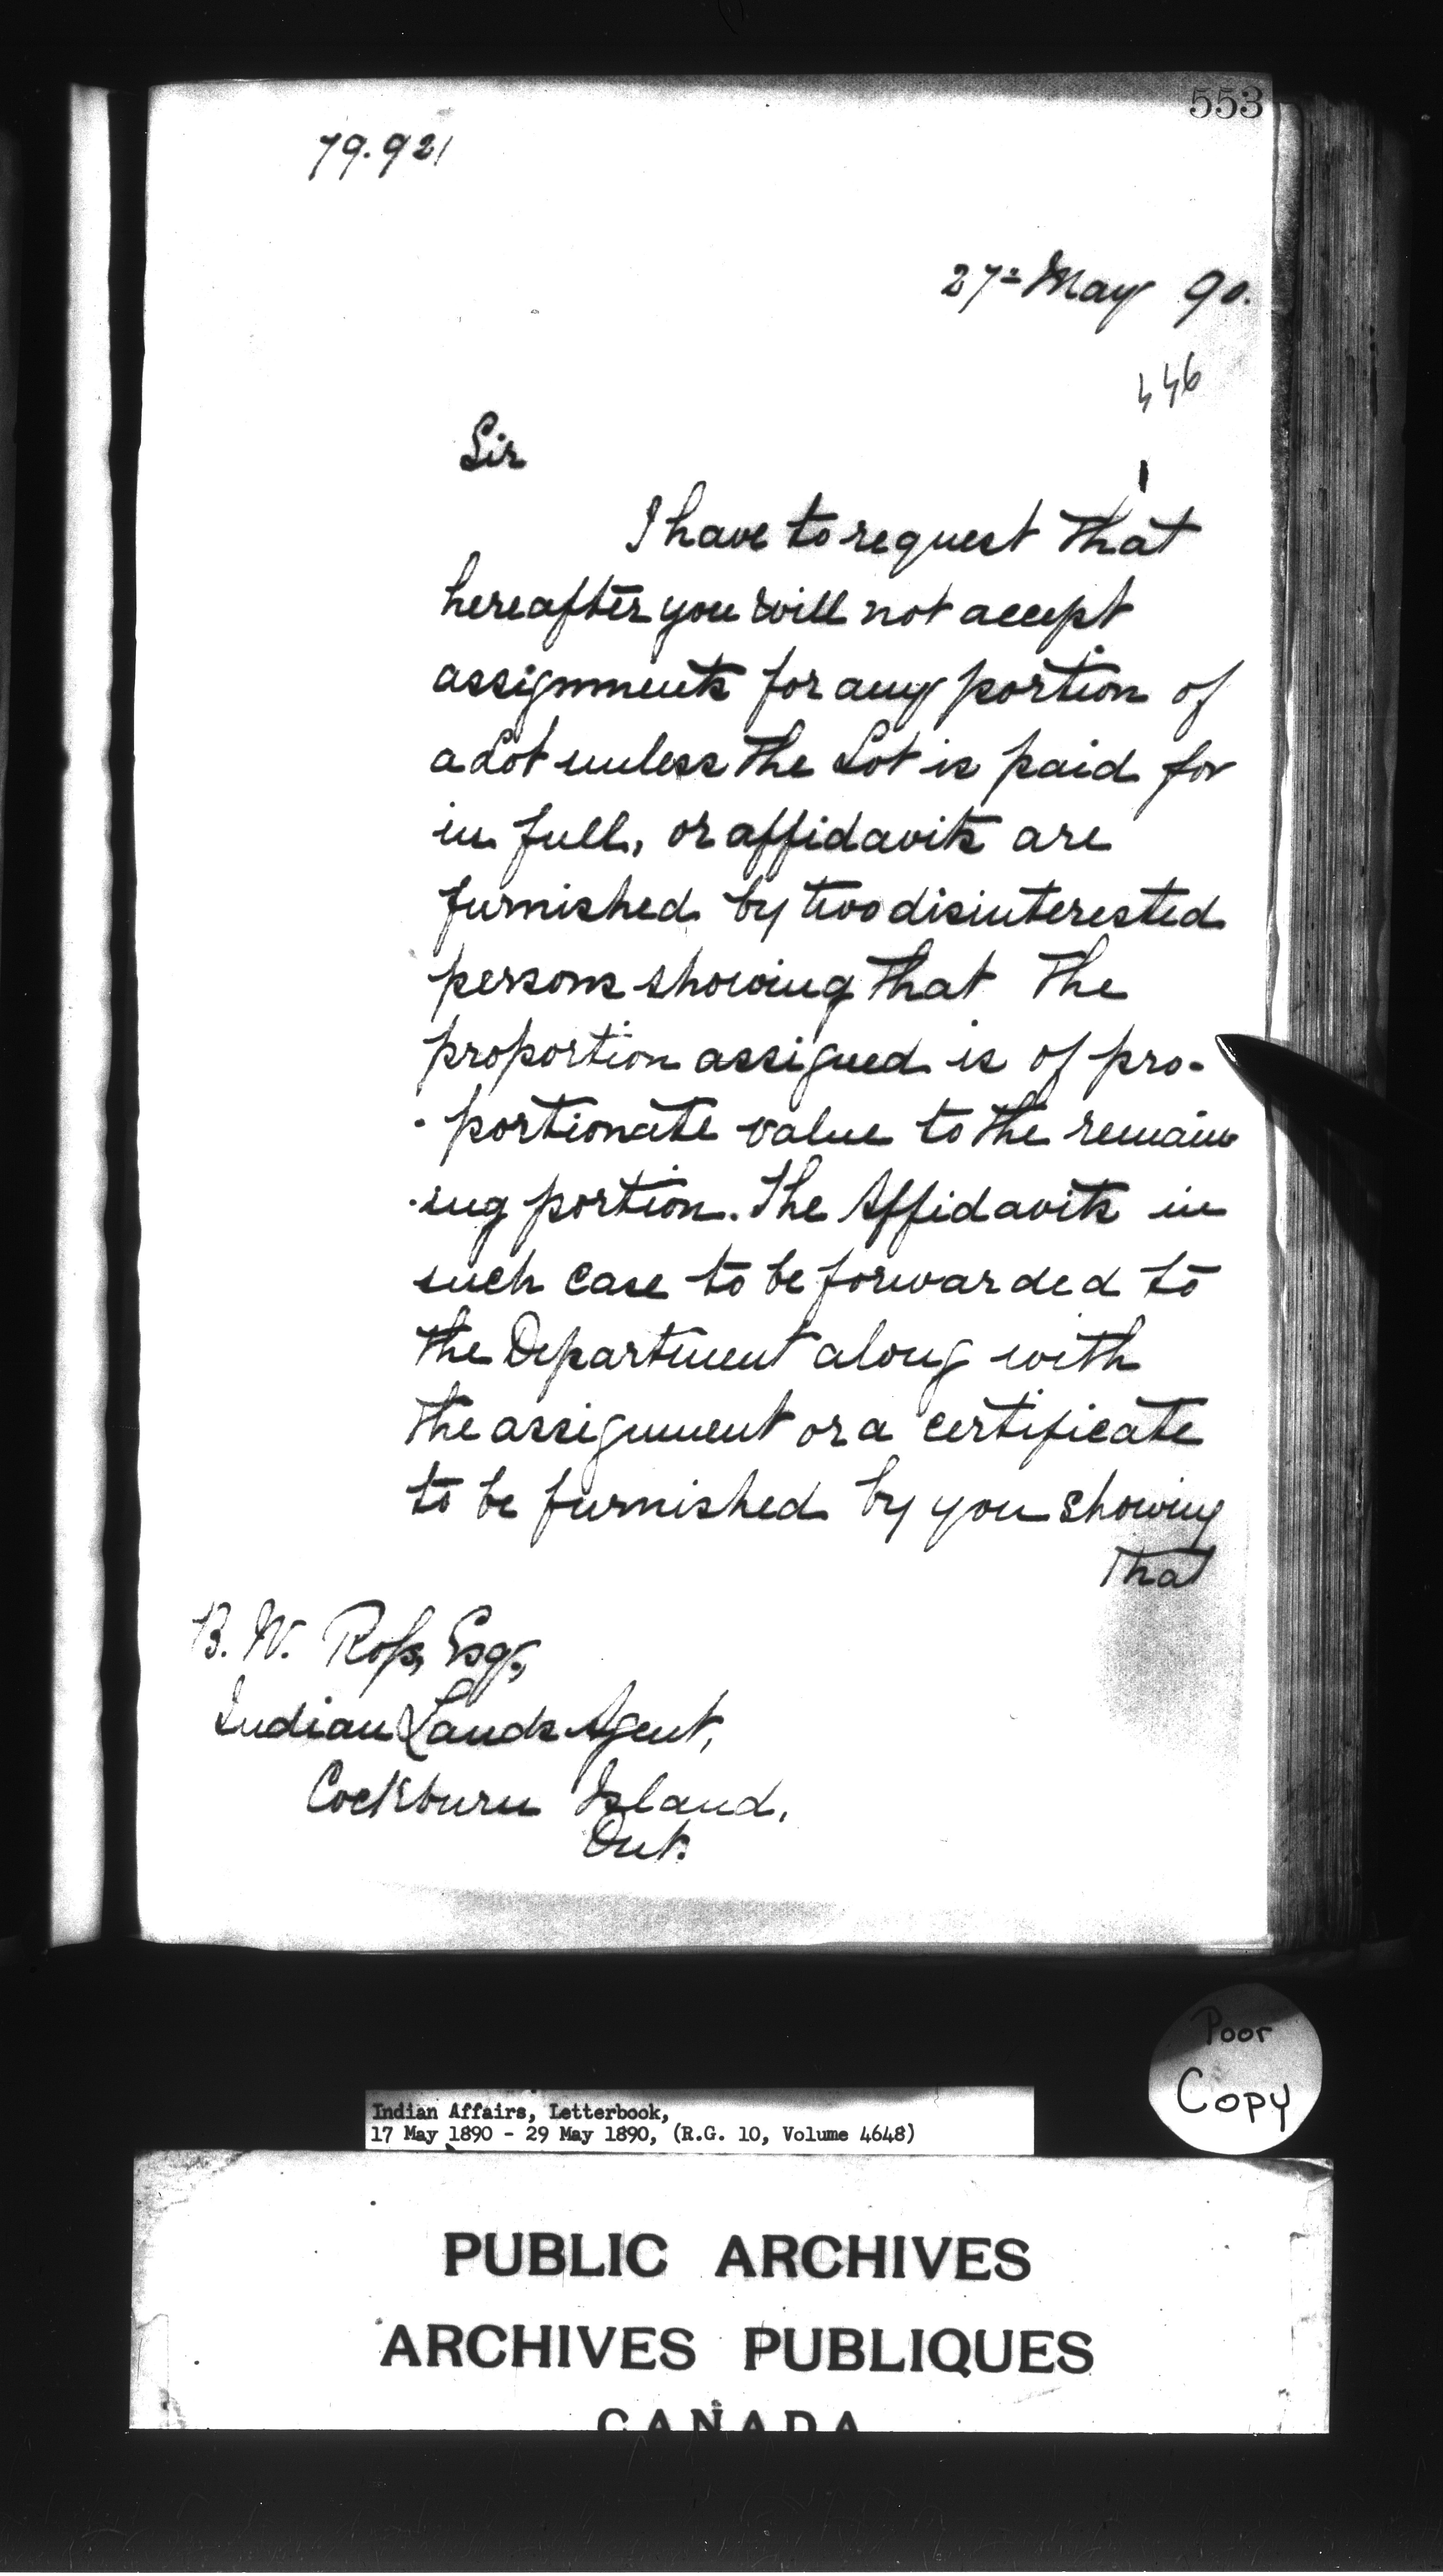 553
79.921
27th May 90.
446
Sir
I have to request that
hereafter you will not accept
assignments for any portion of
a Lot unless the Lot is paid for
in full, or affidavits are
furnished by two disinterested
persons showing that the
proportion assigned is of pro-
-portionate value to the remain
-ing portion. The Affidavits in
such case to be forwarded to
the Department along with
the assignment or a certificate
to be furnished by you showing
that
B. W. Ross, Esq.,
Indian Lands Agent,
Cockburn Island,
Ont.
Poor
Copy
Indian Affairs, Letterbook,
17 May 1890 - 29 May 1890, (R.G. 10, Volume 4648)
PUBLIC ARCHIVES
ARCHIVES PUBLIQUES
CANADA